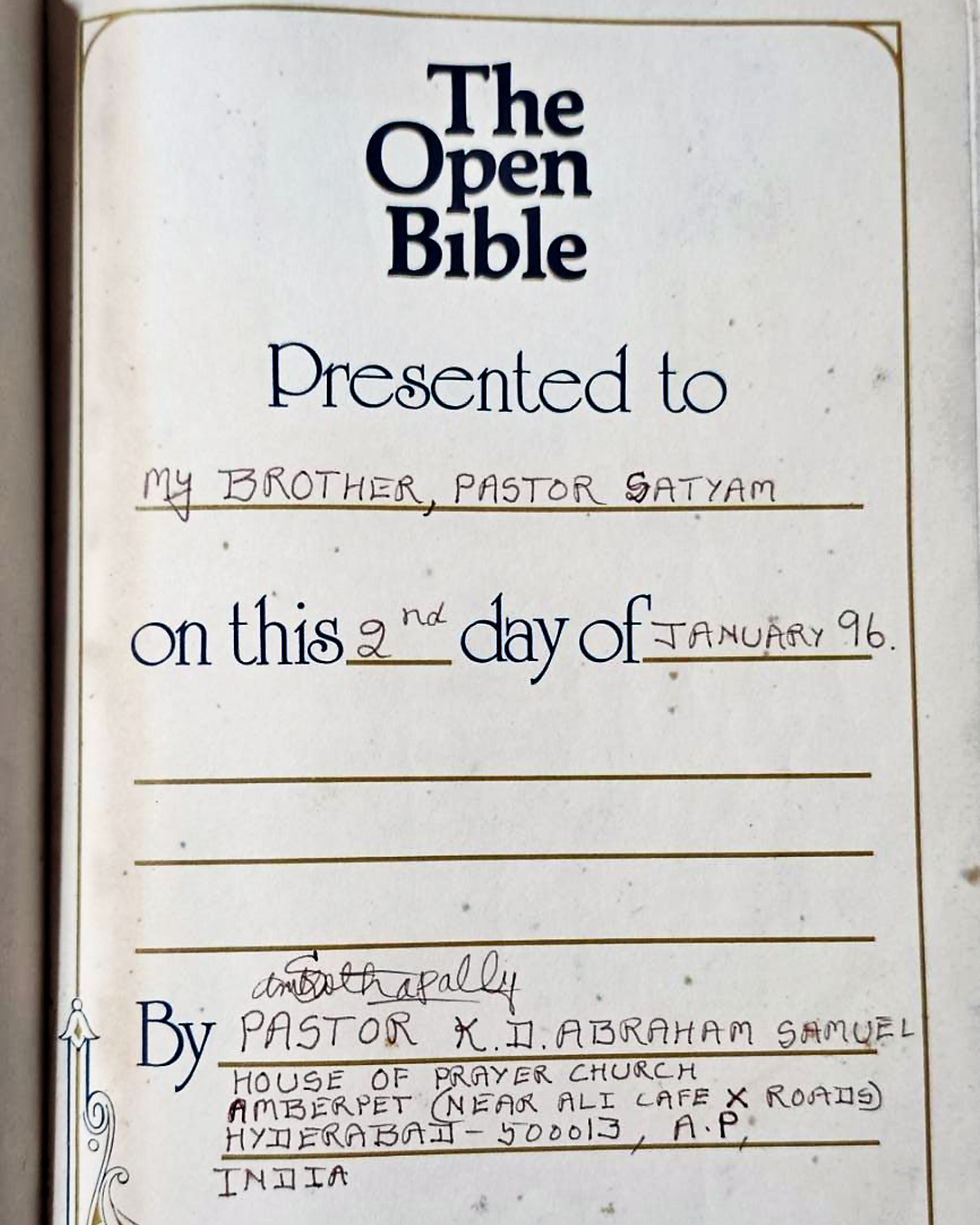 The
Open
Bible
Presented to
My BROTHER, PASTOR SATYAM
on this 2nd day of JANUARY 96.
By PASTOR K.D. ABRAHAM SAMUEL
HOUSE OF PRAYER CHURCH
AMBERPET (NEAR ALI CAFE X ROADS)
HYDERABAD - 500013, A.P,
INDIA